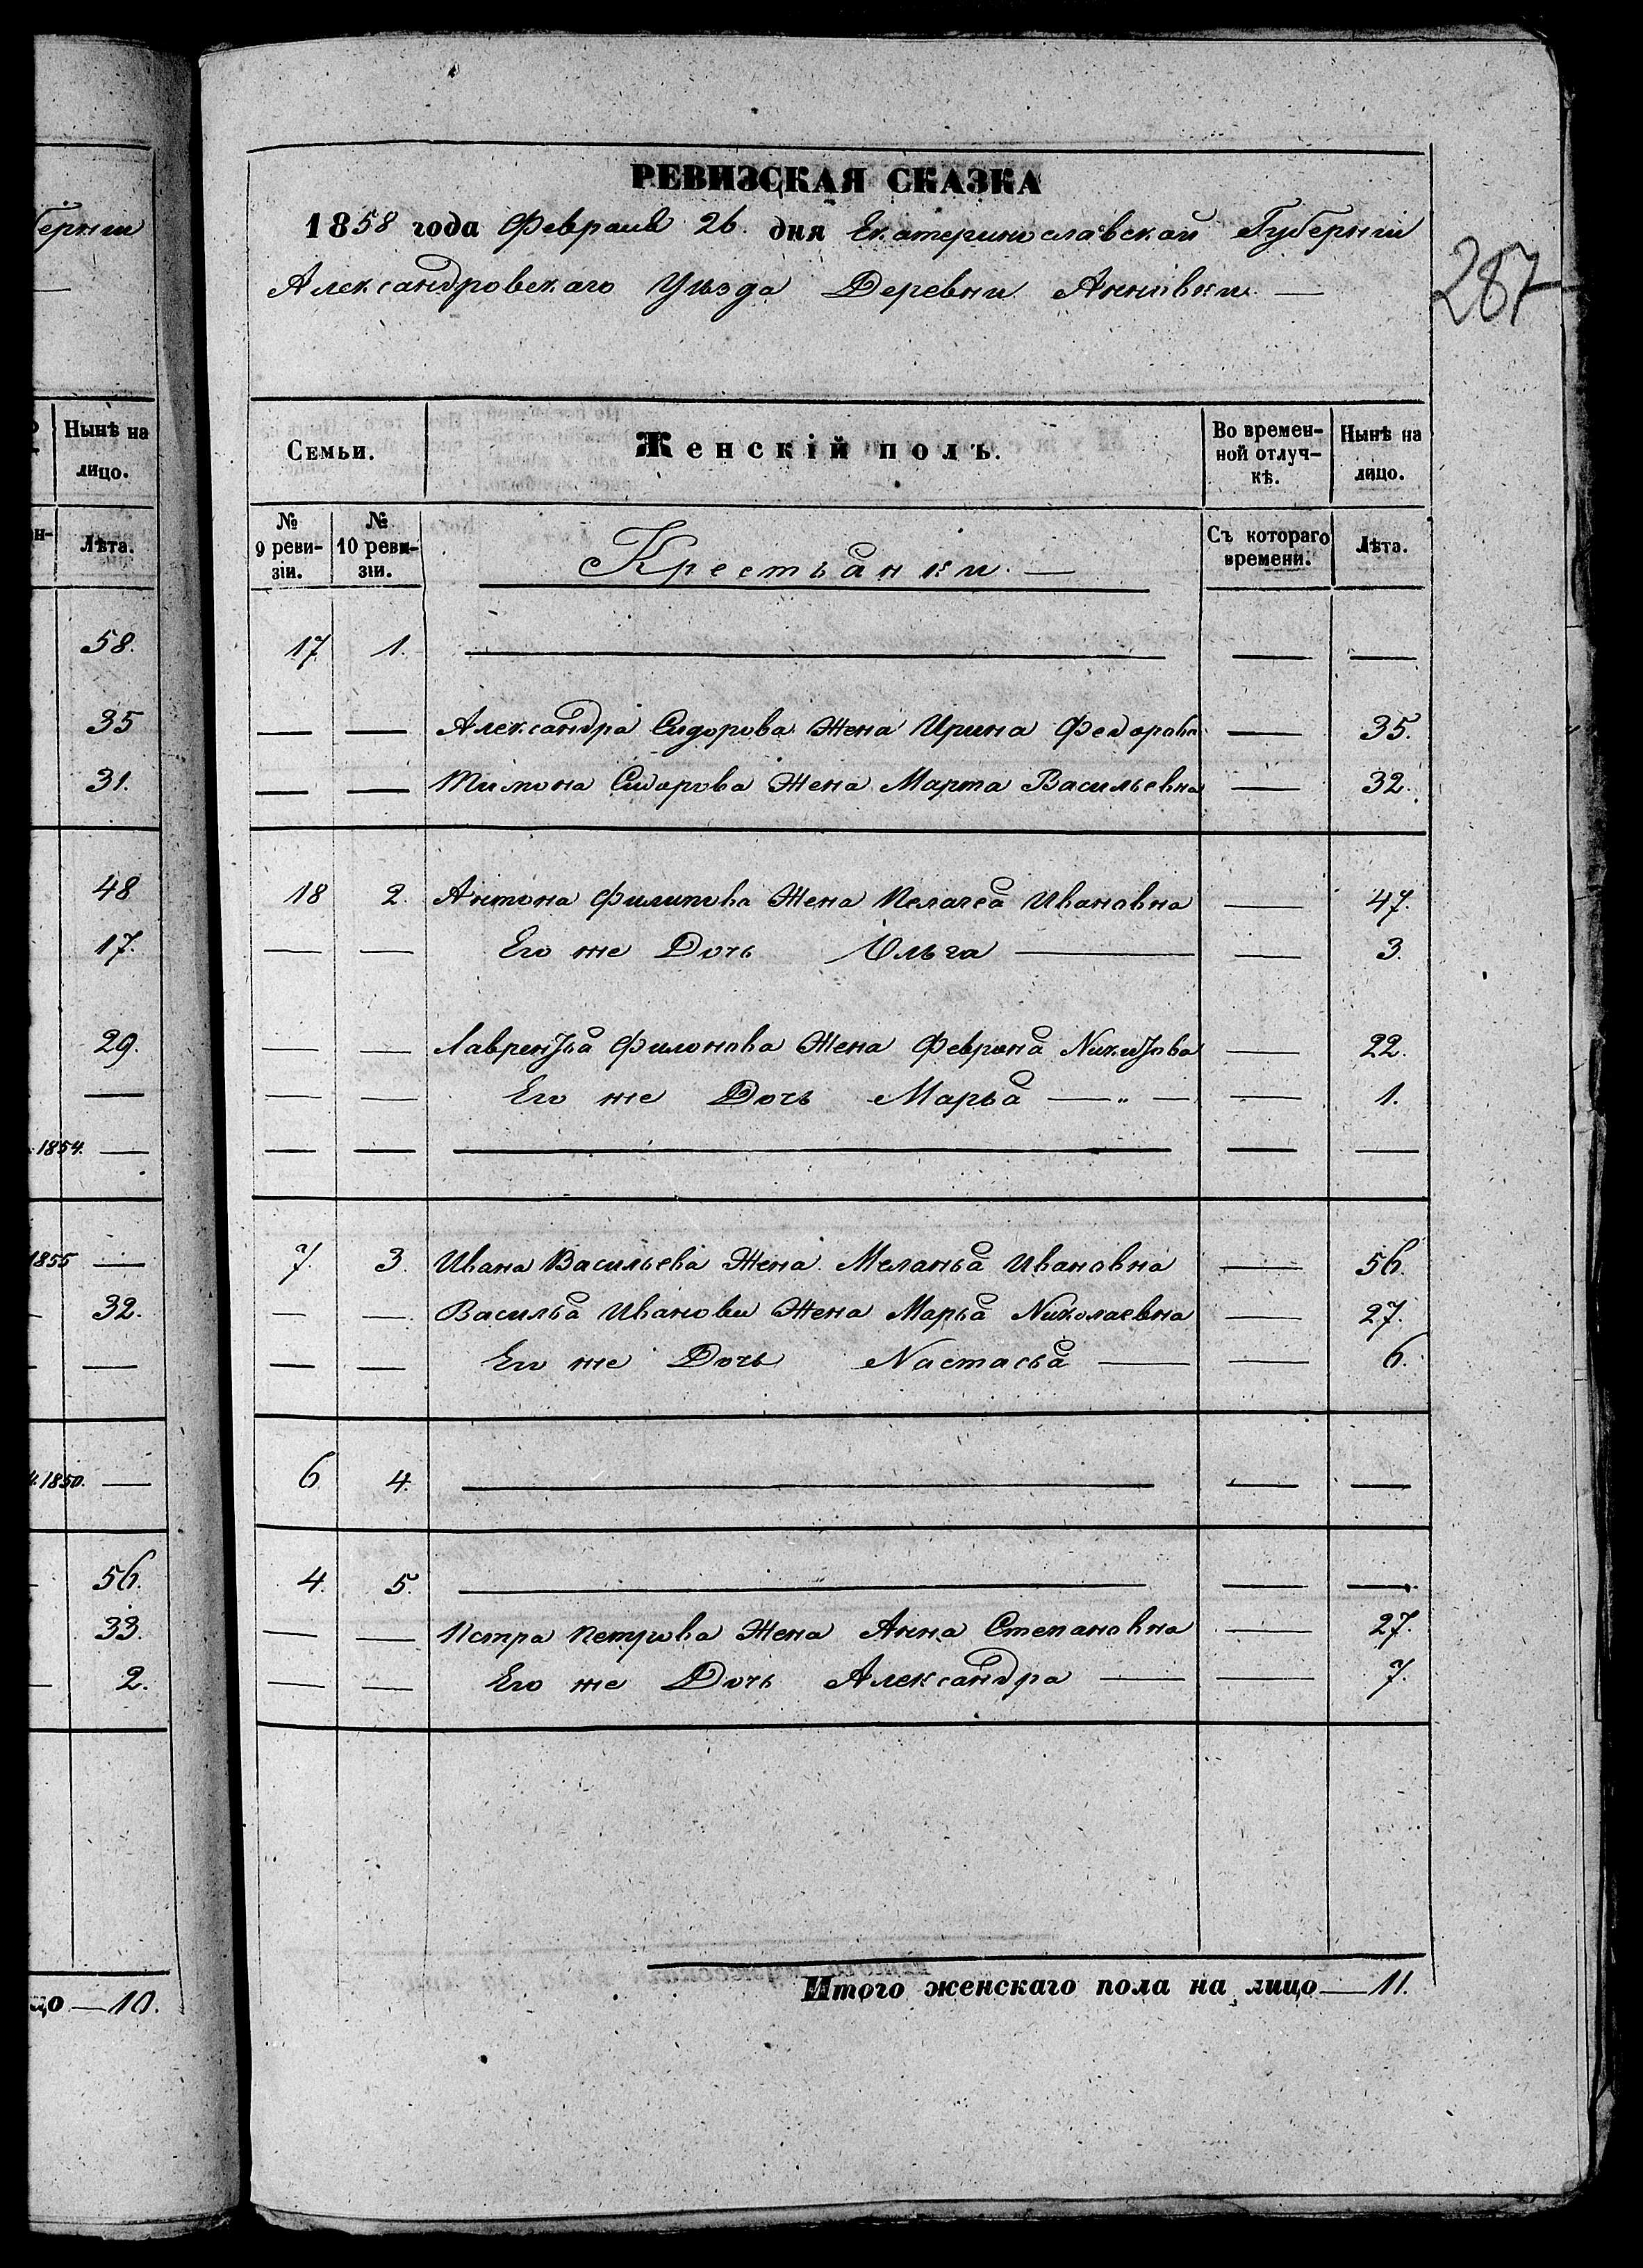 ерніи
Нынѣ на
лицо.
Лѣта.
58.
35
31.
48
17.
29.
1854.
1855
32.
1850.
56.
33.
2.
10.
287
РЕВИЗСКАЯ СКАЗКА
1858 года Февраля 26. дня Екатеринославской Губерніи
Александровскаго Уѣзда Деревни Анновки. —
Семьи.
Женскій полъ.
Во времен-
ной отлуч-
кѣ.
Нынѣ на
лицо.
№
9 реви-
зіи.
№
10 реви-
зіи.
Крестьянки. —
Съ котораго
времени.
Лѣта.
17 1. — — —
— — Александра Сидорова Жена Ирина Федорова — 35.
— — Тимона Сидорова Жена Марта Васильевна — 32.
18 2. Антона Филипова Жена Пелагея Ивановна — 47.
— — Его же Дочь Ольга — — 3.
— — Лаврентья Филонова Жена Феврона Никитова — 22.
— — Его же Дочь Марья — „ — — 1.
— — — — —
7. 3. Ивана Васильева Жена Меланья Ивановна — 56.
— — Василья Иванова Жена Марья Николаевна — 27.
— — Его же Дочь Настасья — — 6.
6 4. — — —
4. 5. — — —
— — Петра Петрова Жена Анна Степановна — 27.
— — Его же Дочь Александра — — 7.
Итого женскаго пола на лицо — 11.